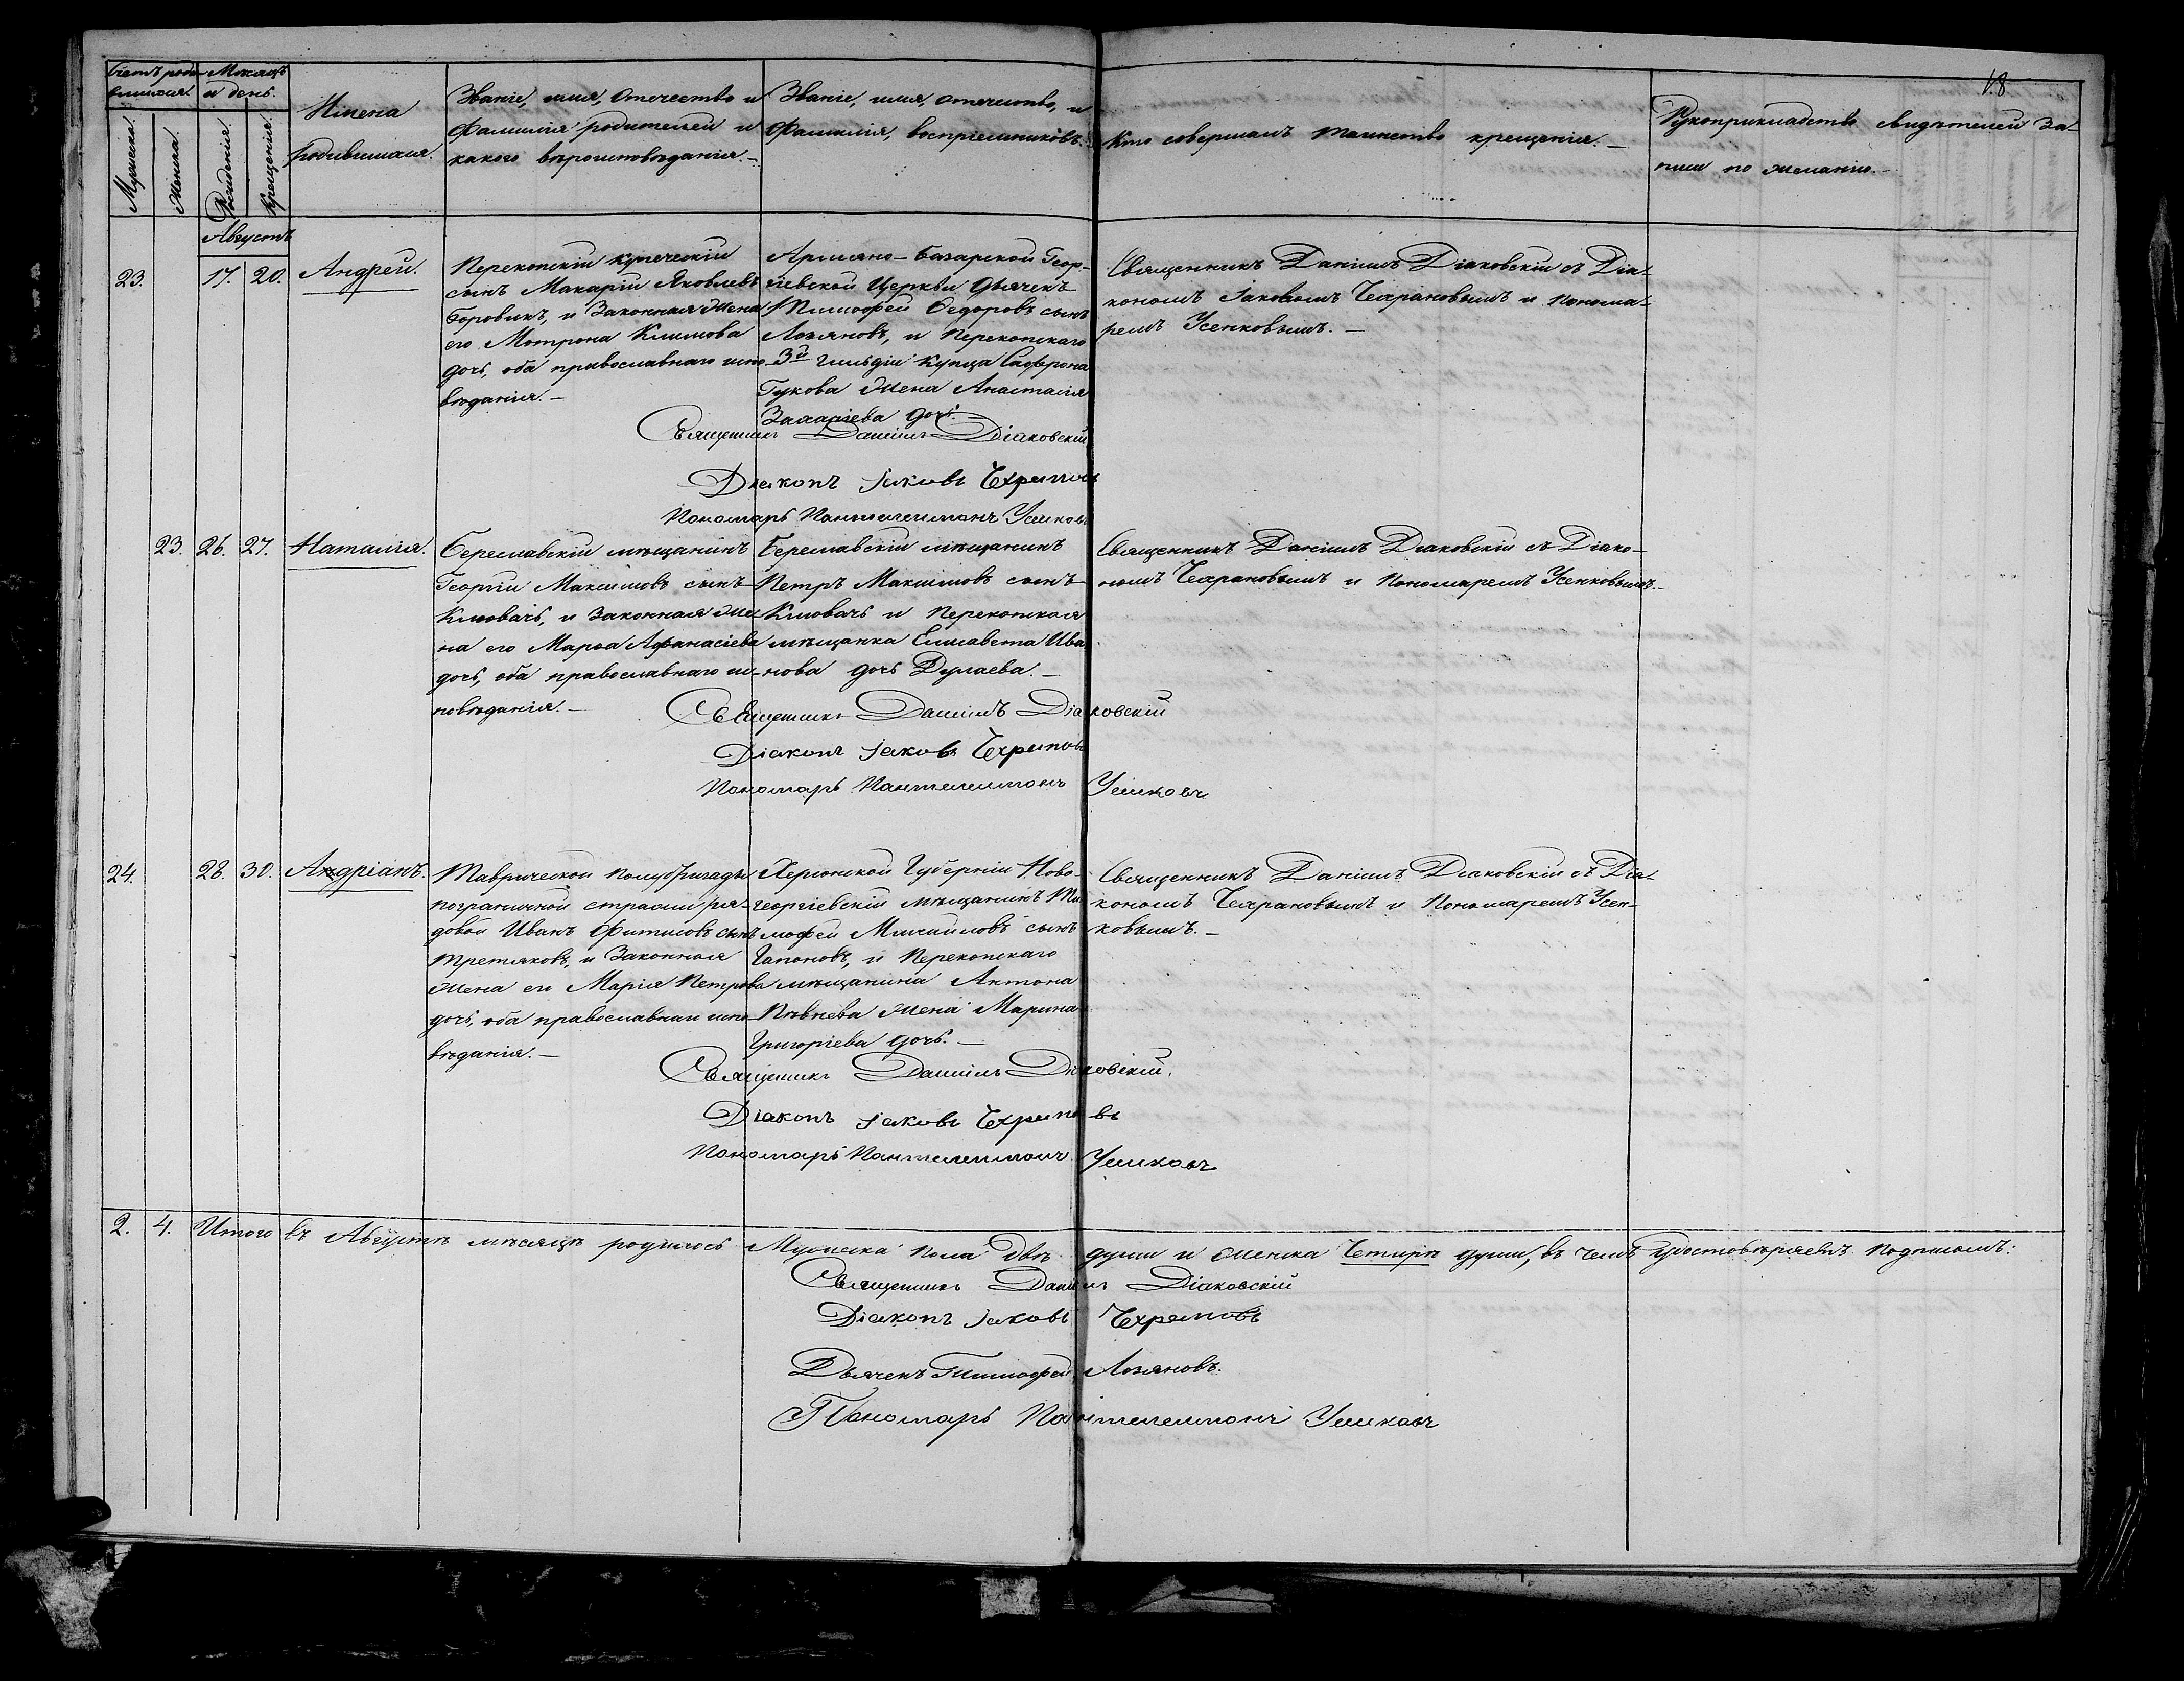 18
Счетъ роди-
вшихся.
Мѣсяцъ
и день.
Мужеска.
Женска.
Рожденія.
Крещенія.
Имена
родившихся.
Званіе, имя, отечество и
фамилія родителей и
какого вѣроисповѣданія.—
Званіе, имя, отечество, и
фамилія, воспріемниковъ.
Кто совершалъ таинство крещенія.—
Рукоприкладство свидѣтелей за-
писи по желанію.—
Августъ
23.
17.
20.
Андрей.
Перекопскій купеческій
сынъ Макарій Яковлевъ
Боровикъ, и Законная жена
его Мотрона Климова
дочь, оба православнаго испо-
вѣданія.—
Армяно-Базарской Геор-
гіевской Церкви Дьячекъ
Тимофей Ѳедоровъ сынъ
Лозяновъ, и Перекопскаго
3й гильдіи купца Софрона
Гукова жена Анастасія
Захаріева дочь.
Священникъ Даніилъ Діаковскій съ Діа-
кономъ Іаковомъ Чехрановымъ и Понома-
ремъ Усенковымъ.—
Священникъ Даніилъ Діаковскій
Діаконъ Іаковъ Чехрановъ
Пономарь Пантелеимонъ Усенковъ
23.
26.
27.
Наталія.
Бериславскій мѣщанинъ
Георгій Максимовъ сынъ
Клювачъ, и Законная же-
на его Марѳа Афанасіева
дочь, оба православнаго ис-
повѣданія.—
Бериславскій мѣщанинъ
Петръ Максимовъ сынъ
Клювачъ и Перекопская
мѣщанка Елисавета Ива-
нова дочь Дулаева.—
Священникъ Даніилъ Діаковскій съ Діако-
номъ Чехрановымъ и Пономаремъ Усенковымъ.—
Священникъ Даніилъ Діаковскій
Діаконъ Іаковъ Чехрановъ
Пономарь Пантелеимонъ Усенковъ
24.
28.
30.
Андріанъ.
Таврической полубригады
пограничной стражи ря-
довой Иванъ Фитисовъ сынъ
Третяковъ, и Законная
жена его Марія Петрова
дочь, оба православнаго испо-
вѣданія.—
Херсонской Губерніи Ново-
георгіевскій мѣщанинъ Ти-
мофей Михайловъ сынъ
Гапоновъ, и Перекопскаго
мѣщанина Антона
Пѣвнева жена Марина
Григоріева дочь.—
Священникъ Даніилъ Діаковскій съ Діа-
кономъ Чехрановымъ и Пономаремъ Усен-
ковымъ.—
Священникъ Даніилъ Діаковскій.
Діаконъ Іаковъ Чехрановъ
Пономарь Пантелеимонъ Усенковъ
2. 4. Итого въ Августѣ мѣсяцѣ родилось Мужеска пола двѣ души и женска Четыре души, въ чемъ удостовѣряемъ подписомъ:
Священникъ Даніилъ Діаковскій
Діаконъ Іаковъ Чехрановъ
Дьячекъ Тимофей Лозяновъ.
Пономарь Пантелеимонъ Усенковъ